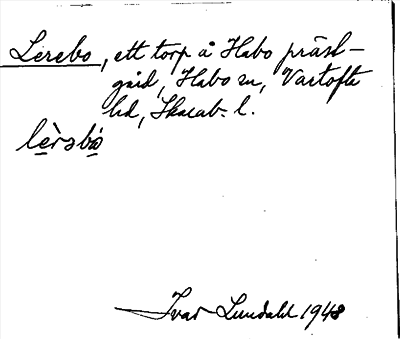 Lerebo, ett torp å Habo präst-
gård, Habo sn, Vartofta
hd, Skarab. l.
lèrəbo
Ivar Lundahl 1948